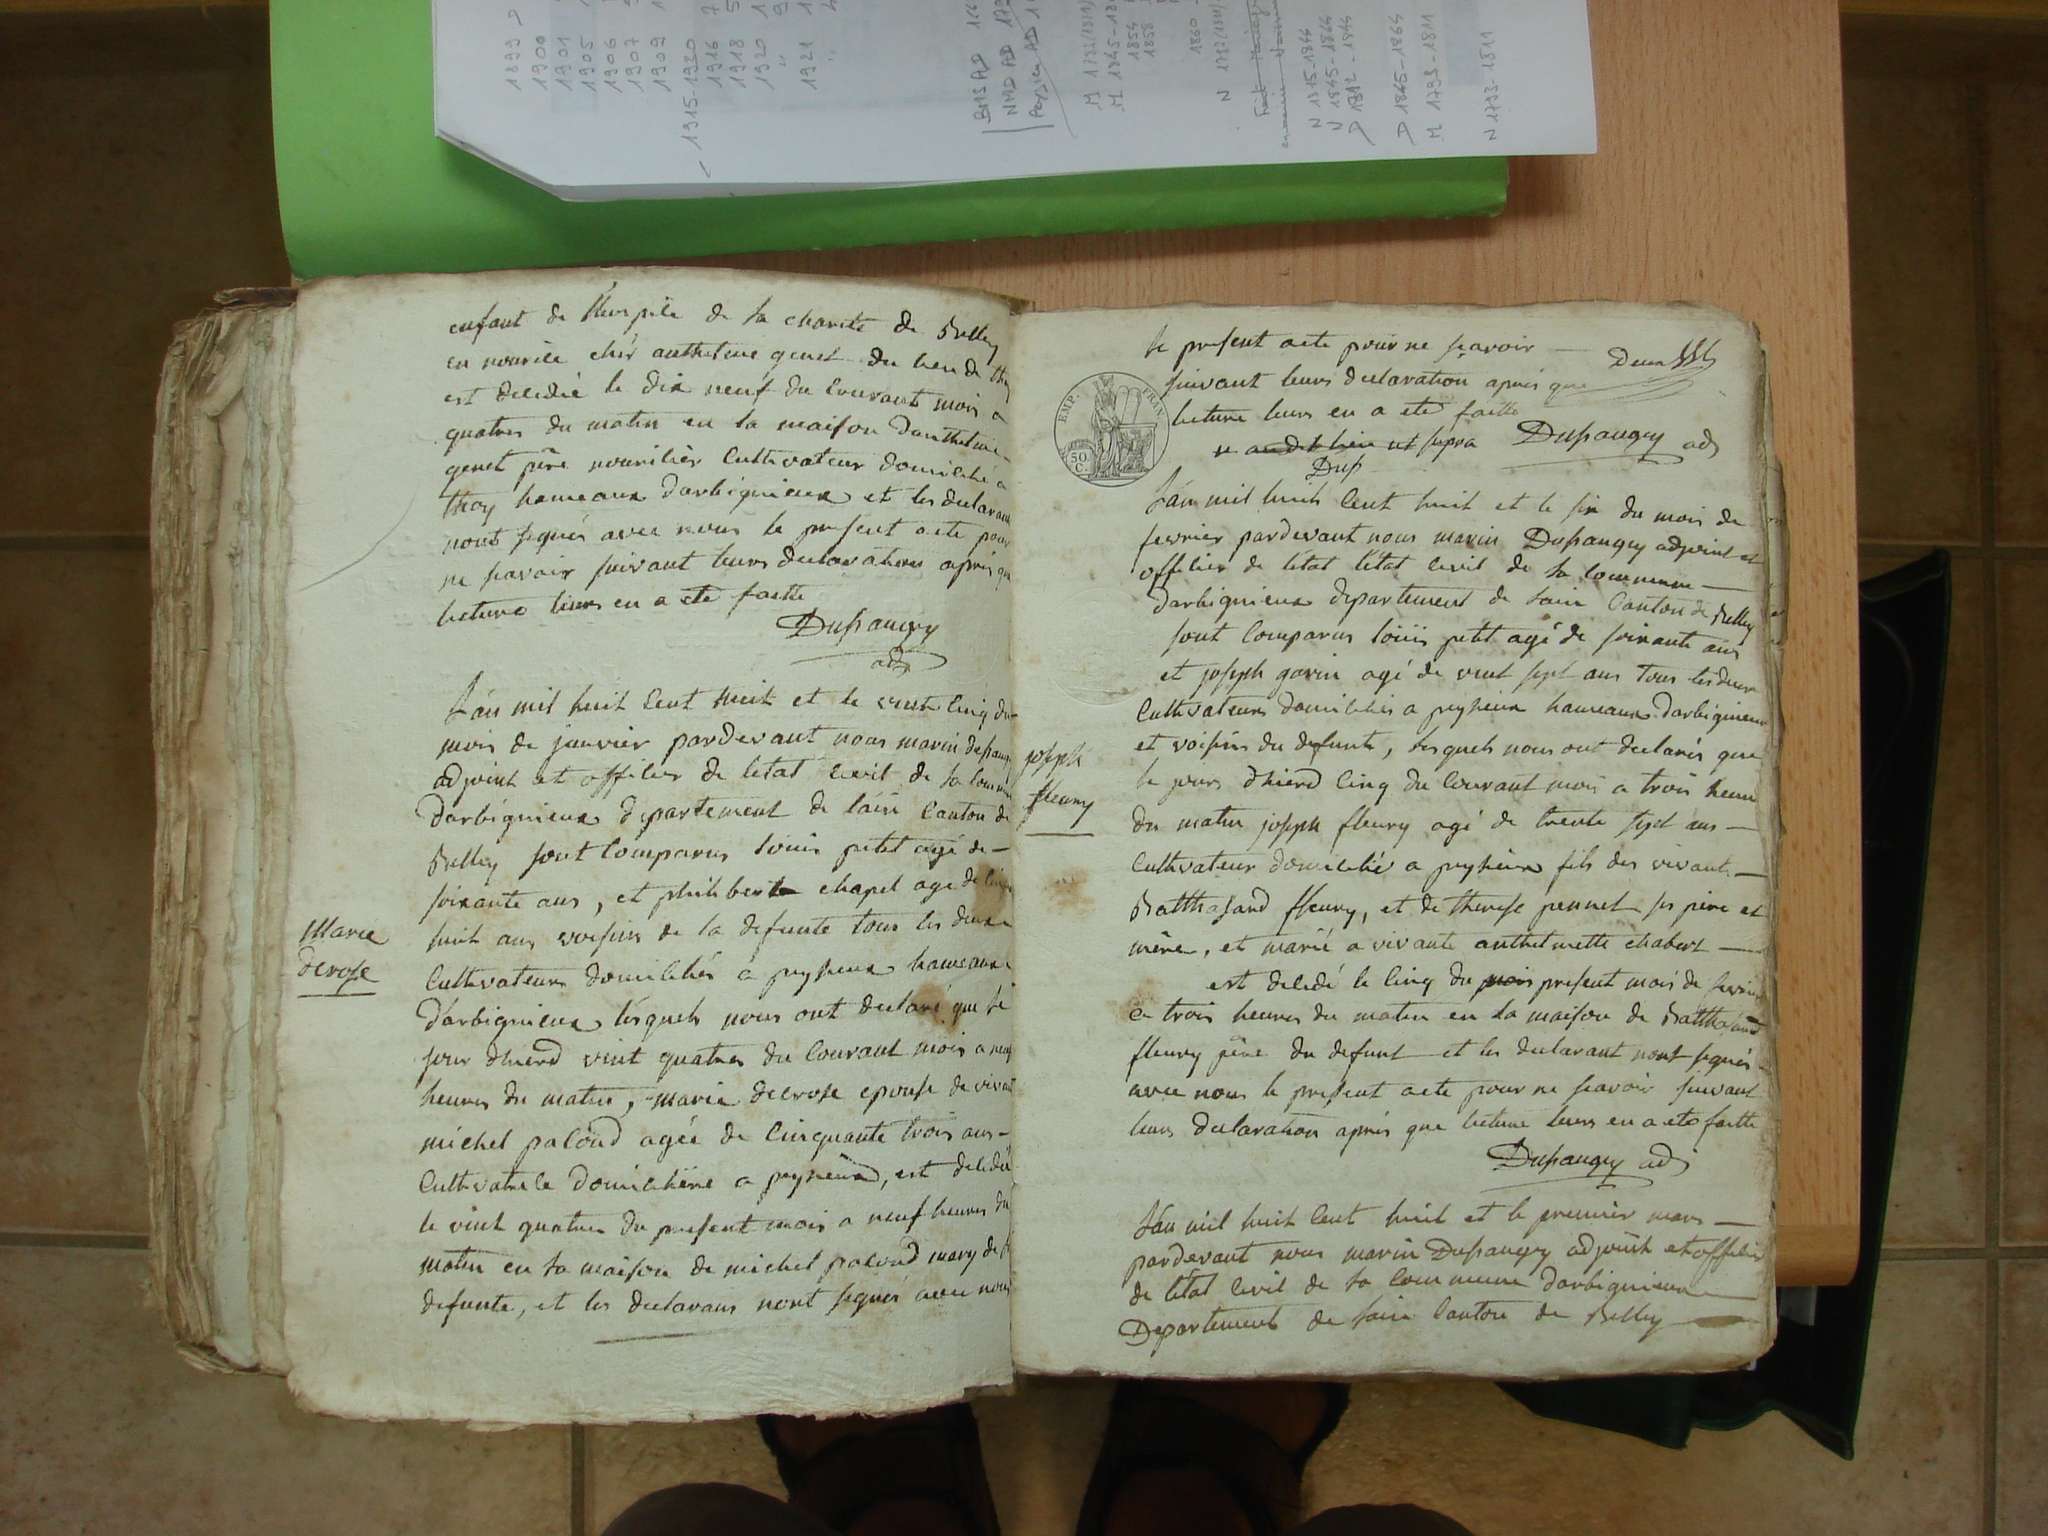 1899
1900
1901
1905
1906
1907
1909
1915-1920
1916
1918
1920
1921
BMS AD
NMD AD
M 1845-18
1854
1858
1860
N 1815-1844
N 1845-1854
D 1812-1844
D 1845-1864
M 1793-1811
N 1793-1811
enfant de l'hospice de la charité de Belley
en nourice chés anthelme genet du lieu de thoy
est décédé le dix neuf du courant mois a
quatres du matin en la maison danthelme
genet père nouricier cultivateur domicilié a
thoy hameaux darbignieux et les declarant
nont signés avec nous le present acte pour
ne savoir suivant leurs declarations après que
lecture leurs en a eté faitte
Dupaugey
adj
L'an mil huit cent huit et le vint cinq du
mois de janvier pardevant nous marin dupaugey
adjoint et officier de letat civil de la commune
darbignieux departement de lain canton de
Belley sont comparus louis petit agé de
soixante ans, et philibert chapel agé de cinq
huit ans voisins de la defunte tous les deux
cultivateurs domiciliés a peyzieux hameaux
d'arbignieux lesquels nous ont declaré que le
jour dhierd vint quatres du courant mois a neuf
heures du matin, marie decrose epouse de vivant
michel paloud agée de cinquante trois ans
cultivatrice domiciliére a peyzieux, est decedée
le vint quatres du present mois a neuf heures du
matin en la maison de michel paloud mary de la
defunte, et les declarans nont signés avec nous
Marie
decrose
le present acte pour ne scavoir
suivant leurs declaration après que
lecture leurs en a eté faitte
ut supra Dupaugey adj
Dup
EMP. FRAN.
50 C.
L'an mil huit cent huit et le six du mois de
fevrier pardevant nous marin Dupaugey adjoint et
officier de létat létat civil de la commune
darbignieux departement de lain canton de Belley
sont comparus louis petit agé de soixante ans
et joseph gavin agé de vint sept ans tous les deux
cultivateurs domiciliés a peyzieux hameaux darbignieux
et voisins du defunts, lesquels nous ont declarés que
le jours dhierd cinq du courant mois a trois heures
du matin joseph fleury agé de trente sept ans
cultivateur domicilié a peyzieux fils des vivant
Batthasard fleury, et de therese pennet ses père et
mère, et marié a vivante anthelmette chabert
est decedé le cinq du mois present mois de fevrier
a trois heures du matin en la maison de Batthasard
fleury père du defunt et les declarant nont signés
avec nous le present acte pour ne savoir suivant
leurs declaration après que lecture leurs en a eté faitte
Dupaugey adj
joseph
fleury
L'an mil huit cent huit et le premier mars
pardevant nous marin Dupaugey adjoint et officier
de létat civil de la commune darbignieux
Departement de lain canton de Belley